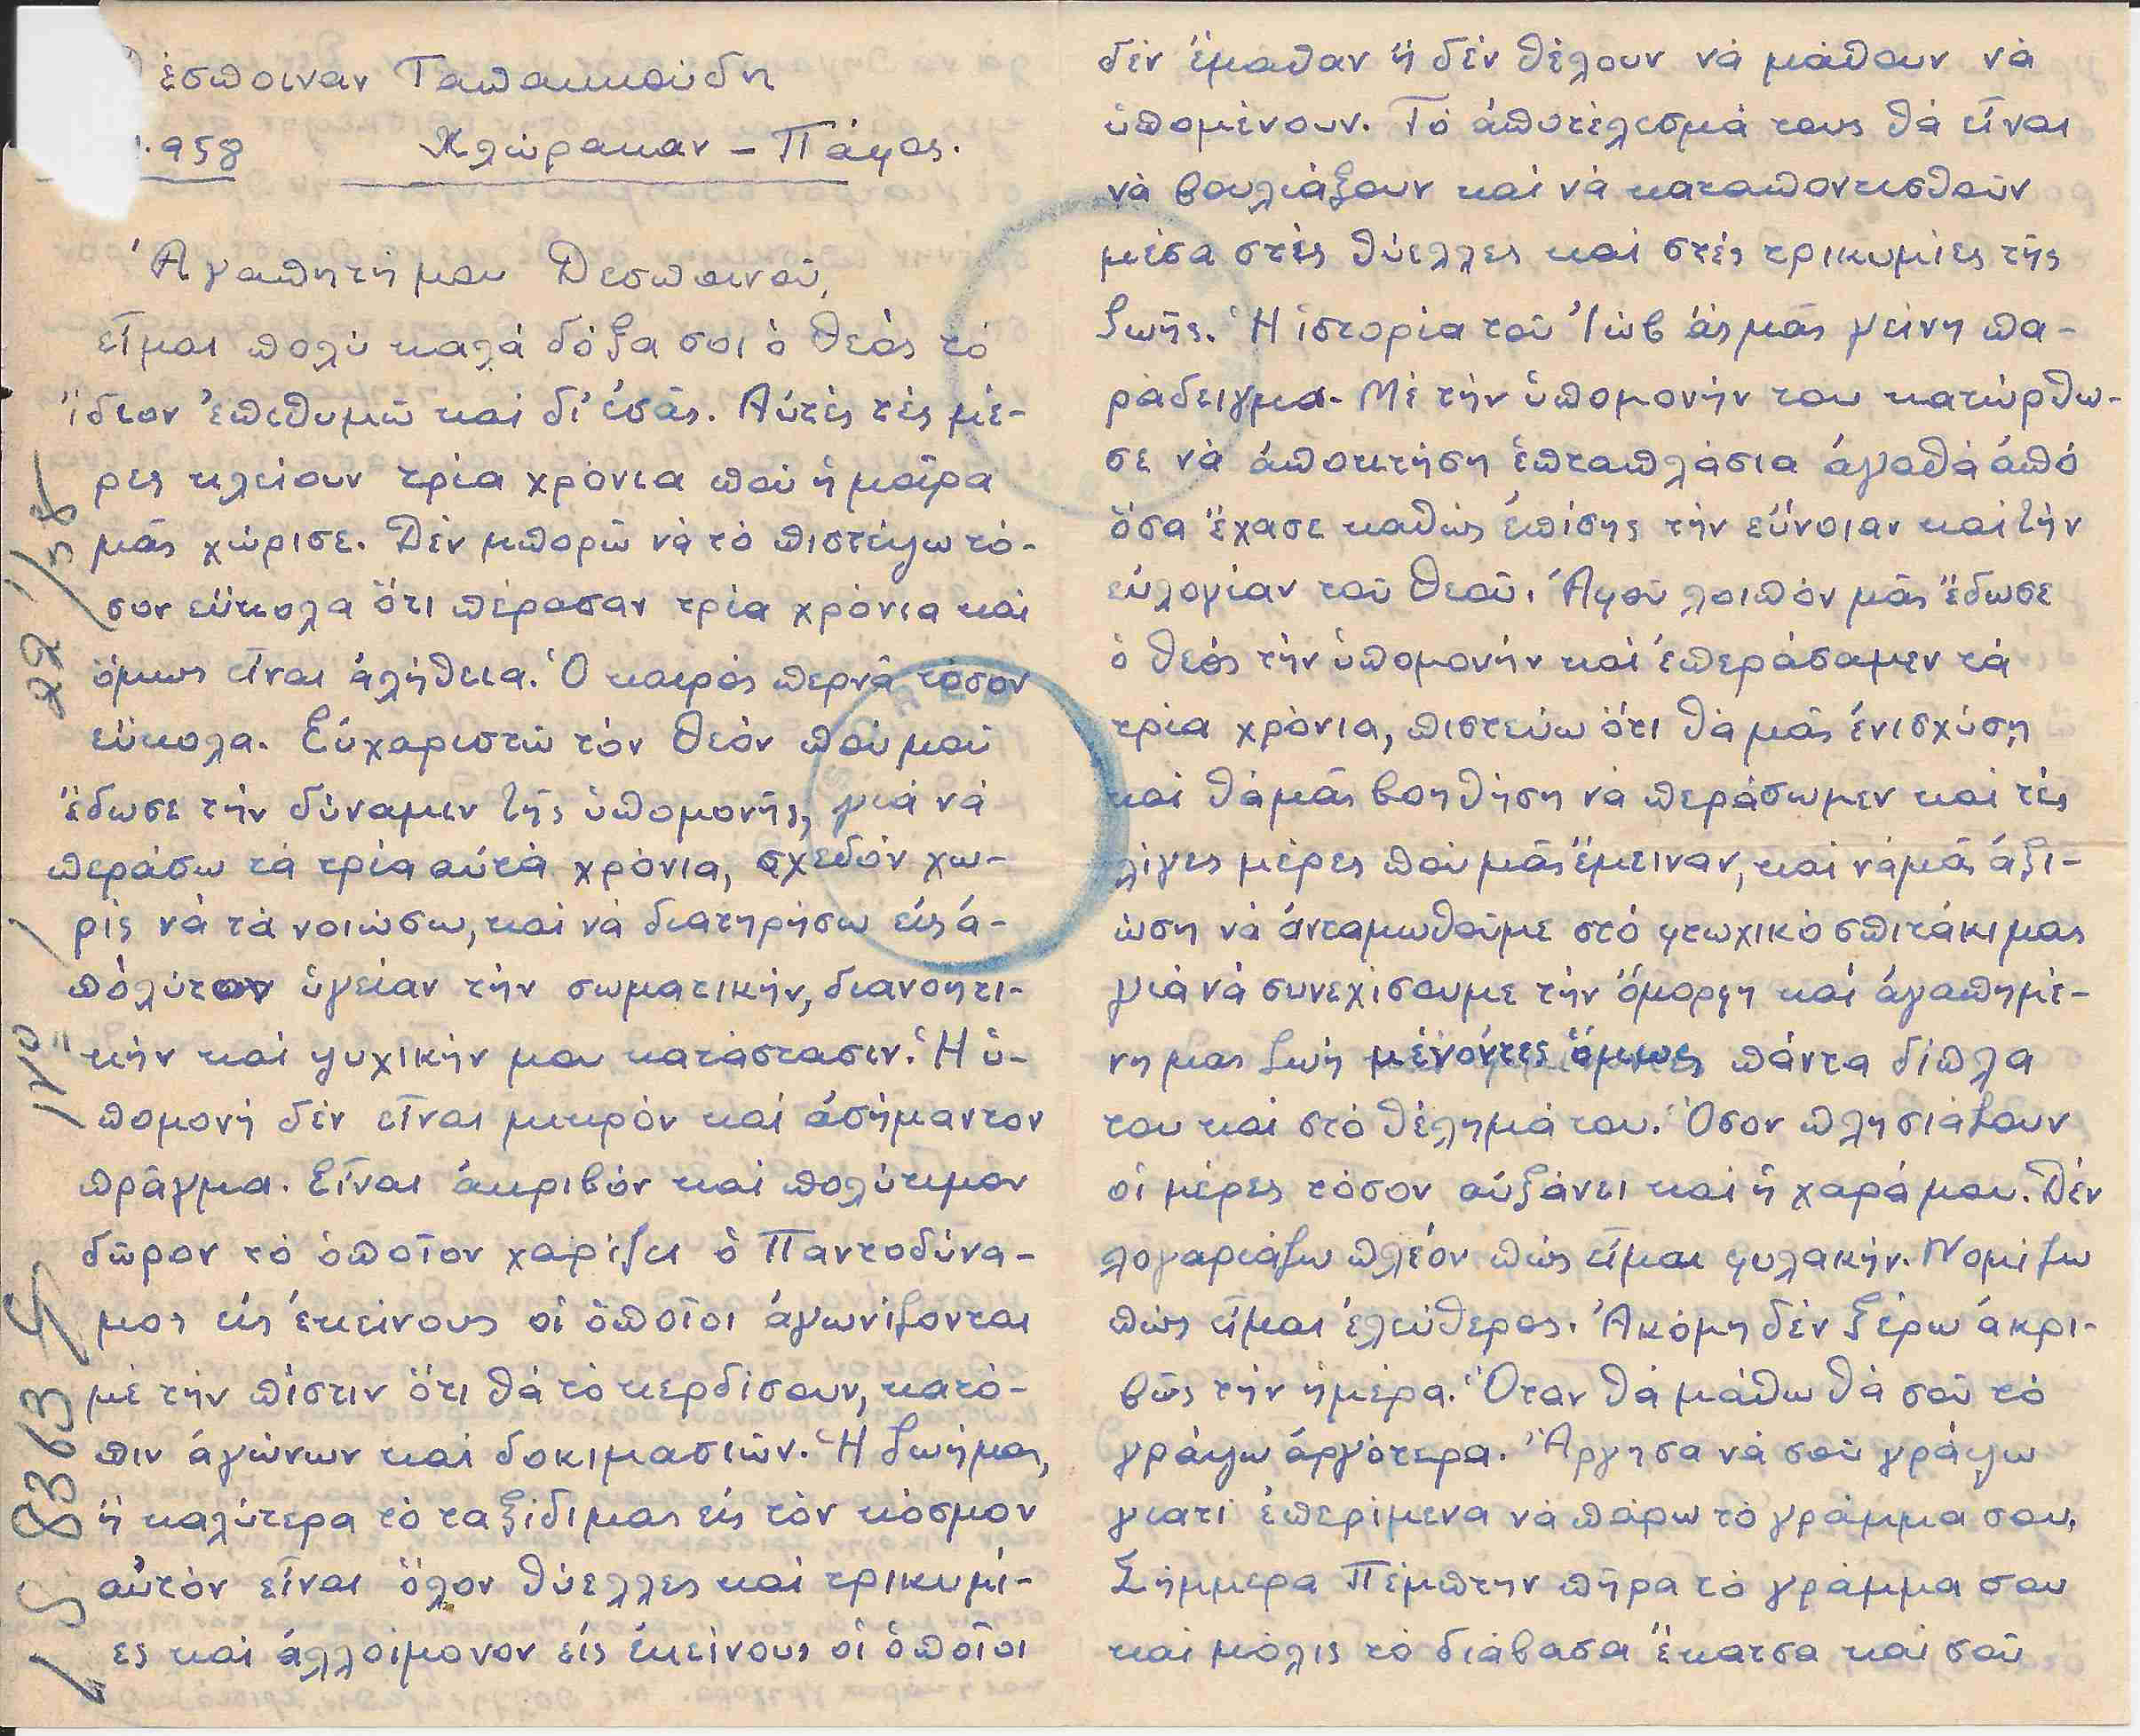 Δέσποιναν Ταπακκούδη
.958 Χλώρακαν - Πάφος.
Ἀγαπητή μου Δεσποινοῦ,
εἶμαι πολύ καλά δόξα σοι ὁ Θεός τό
ἴδιον ἐπιθυμῶ καί δι' ἐσᾶς. Αὐτές τές μέ-
ρες κλείουν τρία χρόνια πού ἡ μοῖρα
μᾶς χώρισε. Δέν μπορῶ νά τό πιστέψω τό-
σον εὔκολα ὅτι πέρασαν τρία χρόνια καί
ὅμως εἶναι ἀλήθεια. Ὁ καιρός περνᾶ τόσον
εὔκολα. Εὐχαριστῶ τόν Θεόν πού μοῦ
ἔδωσε τήν δύναμιν τῆς ὑπομονῆς, γιά νά
περάσω τά τρία αὐτά χρόνια, σχεδόν χω-
ρίς νά τά νοιώσω, καί νά διατηρήσω εἰς ἀ-
πόλυτον ὑγείαν τήν σωματικήν, διανοητι-
κήν καί ψυχικήν μου κατάστασιν. Ἡ ὑ-
πομονή δέν εἶναι μικρόν καί ἀσήμαντον
πρᾶγμα. Εἶναι ἀκριβόν καί πολύτιμον
δῶρον τό ὁποῖον χαρίζει ὁ Παντοδύνα-
μος εἰς ἐκείνους οἱ ὁποῖοι ἀγωνίζονται
μέ τήν πίστιν ὅτι θά τό κερδίσουν, κατό-
πιν ἀγώνων καί δοκιμασιῶν. Ἡ ζωή μας,
ἤ καλύτερα τό ταξίδι μας εἰς τόν κόσμον
αὐτόν εἶναι ὅλον θύελλες καί τρικυμί-
ες καί ἀλλοίμονον εἰς ἐκείνους οἱ ὁποῖοι
δέν ἔμαθαν ἤ δέν θέλουν νά μάθουν νά
ὑπομένουν. Τό ἀποτέλεσμά τους θά εἶναι
νά βουλιάξουν καί νά καταποντισθοῦν
μέσα στές θύελλες καί στές τρικυμίες τῆς
ζωῆς. Ἡ ἱστορία τοῦ Ἰώβ ἄς μᾶς γείνη πα-
ράδειγμα. Μέ τήν ὑπομονήν του κατώρθω-
σε νά ἀποκτήση ἑπταπλάσια ἀγαθά ἀπό
ὅσα ἔχασε καθώς ἐπίσης τήν εὔνοιαν καί τήν
εὐλογίαν τοῦ Θεοῦ. Ἀφοῦ λοιπόν μᾶς ἔδωσε
ὁ Θεός τήν ὑπομονήν καί ἐπεράσαμεν τά
τρία χρόνια, πιστεύω ὅτι θά μᾶς ἐνισχύση
καί θά μᾶς βοηθήση νά περάσωμεν καί τές
λίγες μέρες πού μᾶς ἔμειναν, καί νά μᾶς ἀξι-
ώση νά ἀνταμωθοῦμε στό φτωχικό σπιτάκι μας
γιά νά συνεχίσουμε τήν ὄμορφη καί ἀγαπημέ-
νη μας ζωή μένοντες ὅμως πάντα δίπλα
του καί στό θέλημά του. Ὅσον πλησιάζουν
οἱ μέρες τόσον αὐξάνει καί ἡ χαρά μου. Δέν
λογαριάζω πλέον πώς εἶμαι φυλακήν. Νομίζω
πώς εἶμαι ἐλεύθερος. Ἀκόμη δέν ξέρω ἀκρι-
βῶς τήν ἡμέρα. Ὅταν θά μάθω θά σοῦ τό
γράψω ἀργότερα. Ἄργησα νά σοῦ γράψω
γιατί ἐπερίμενα νά πάρω τό γράμμα σου.
Σήμμερα Πέμπτην πῆρα τό γράμμα σου
καί μόλις τό διάβασα ἔκατσα καί σοῦ